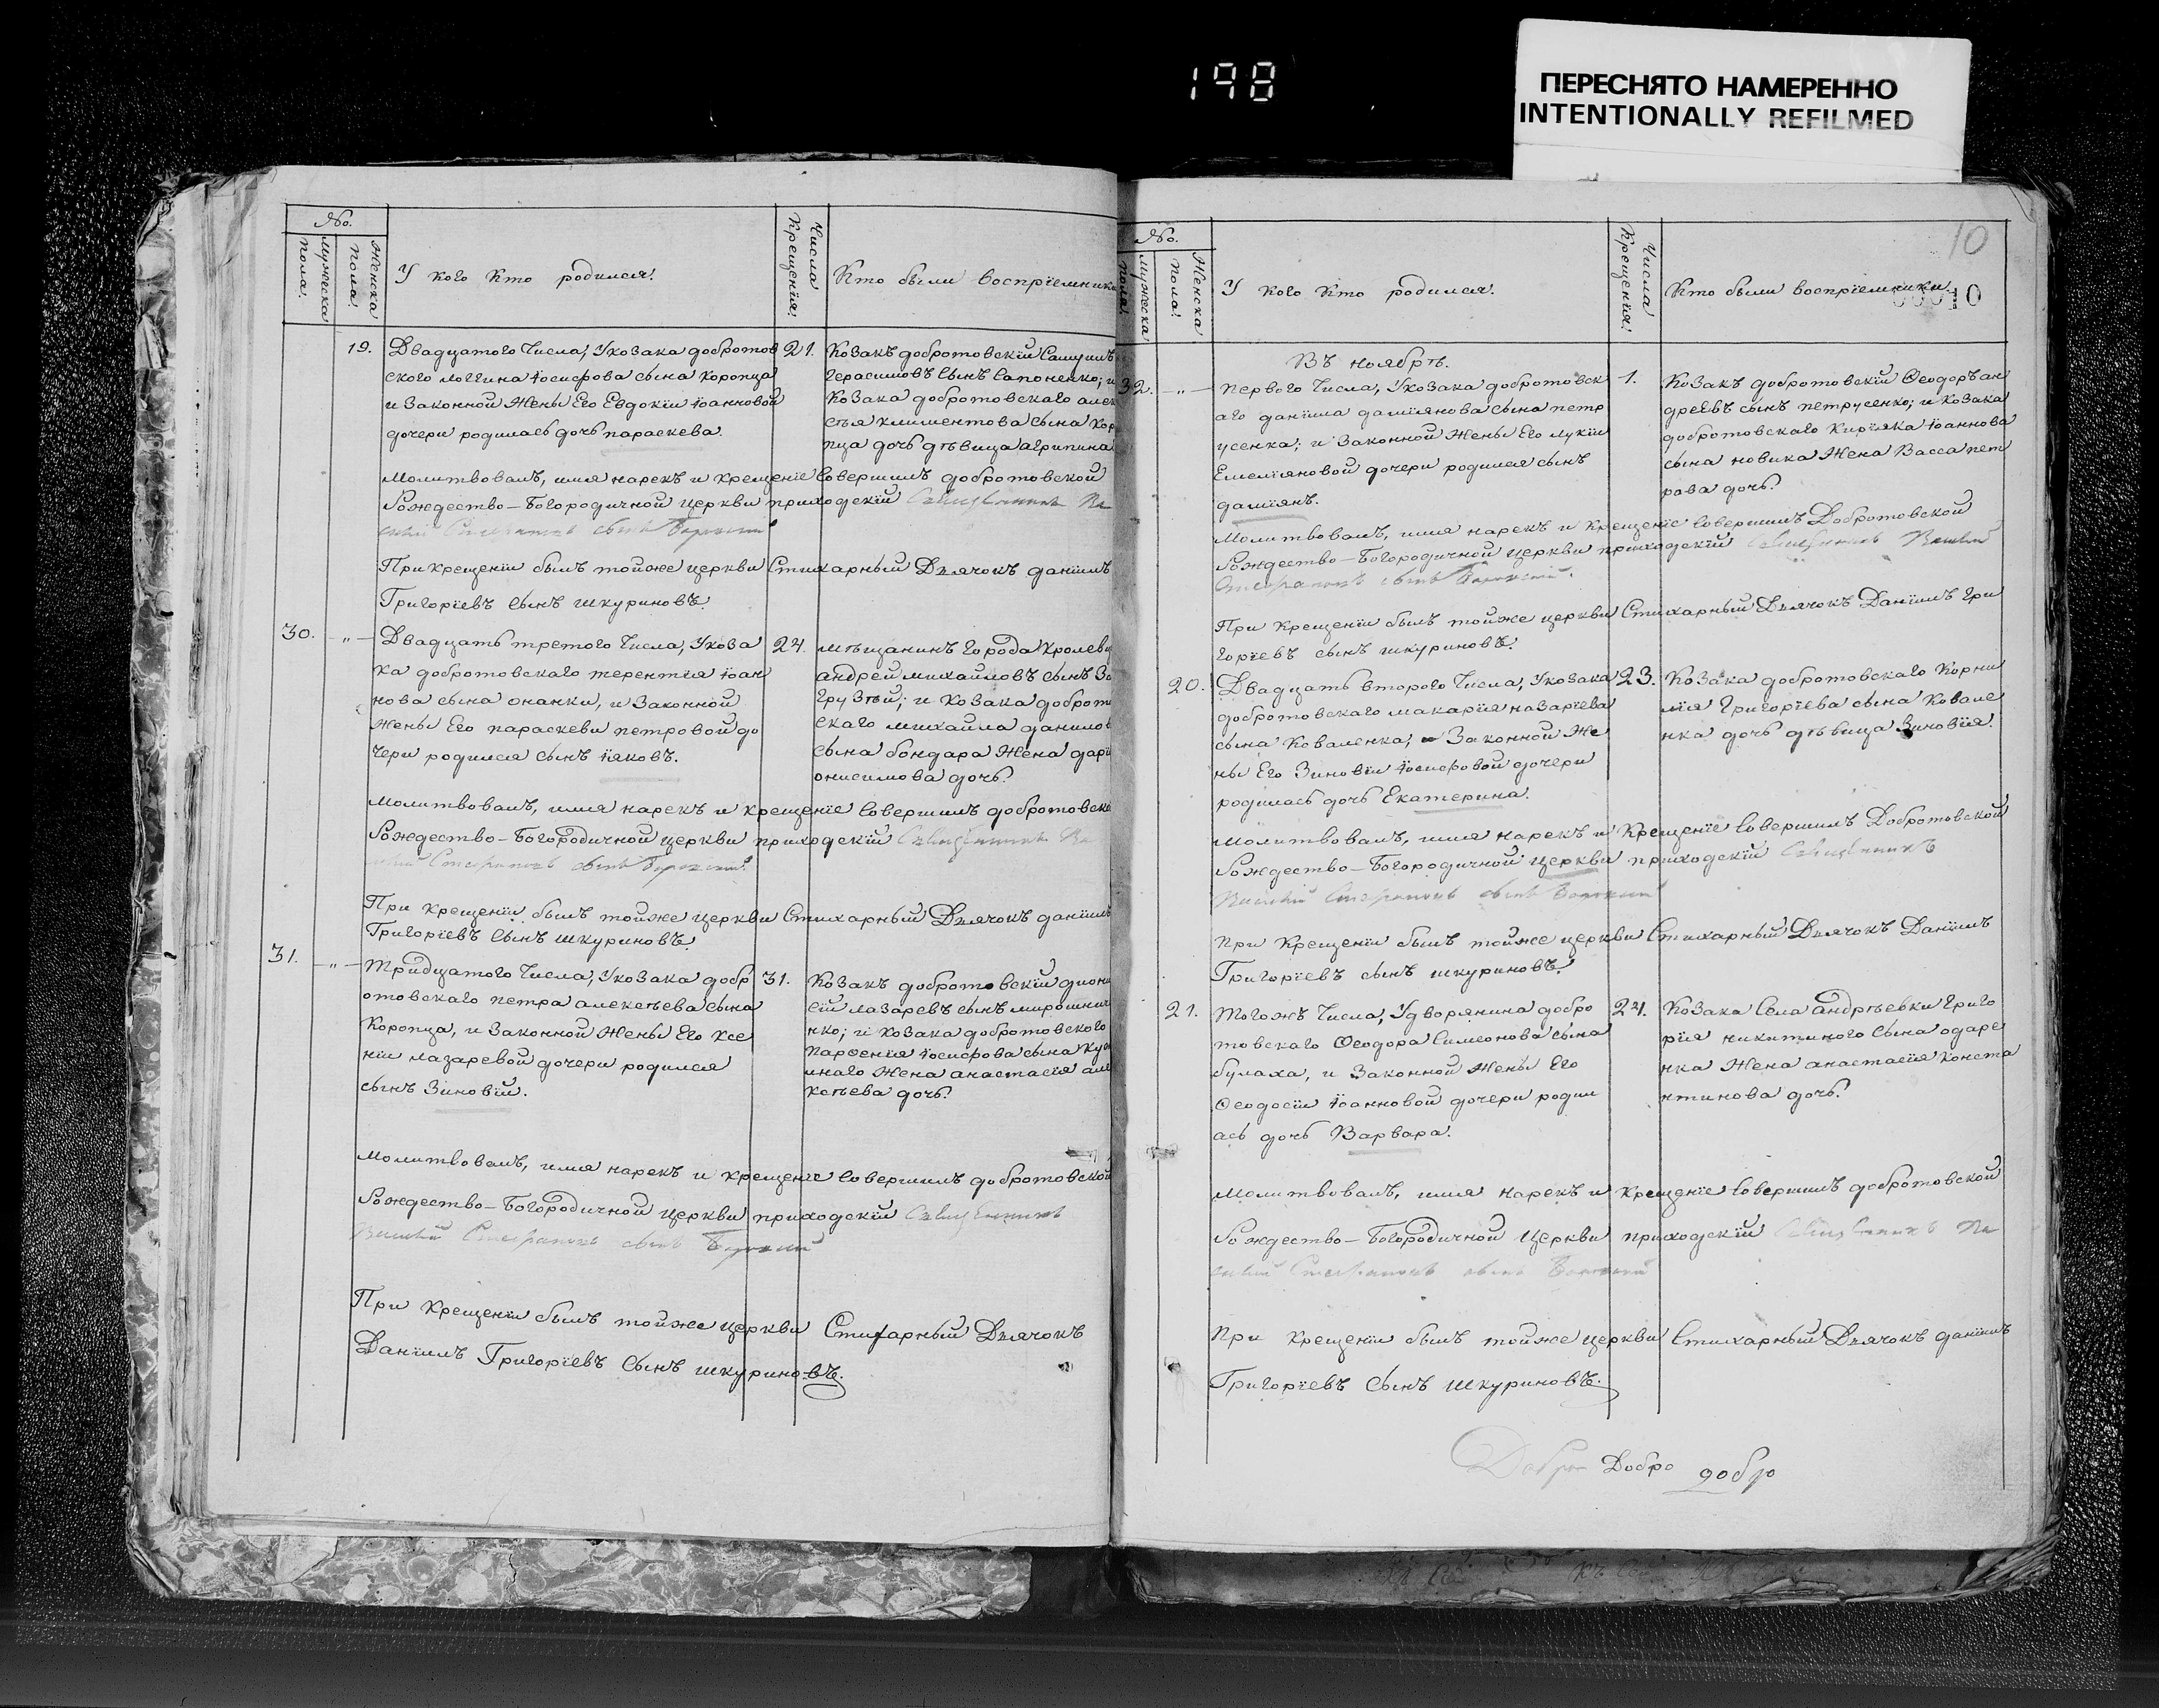 198
ПЕРЕСНЯТО НАМЕРЕННО
INTENTIONALLY REFILMED
No.
мужеска пола.
Женска пола.
У кого кто родился.
Числа Крещенія.
Кто были воспріемники
19.
Двадцатого Числа, У козака добротов
ского логгина іосифова сына коропца
и Законной Жены Его Евдокіи іоанновой
дочери родилась дочь параскева.
21.
Козакъ добротовскій Самуилъ
Герасимовъ Сынъ Сапоненко; и
Козака добротовскаго алек
сѣя климентова сына кор
пца дочь дѣвица агрипина
молитвовалъ, имя нарекъ и крещеніе Совершилъ добротовской
Рождество-Богородичной церкви приходскій Священникъ Ва
силій Стефановъ сынъ
При крещеніи былъ тойже церкви Стихарный Дьячокъ даніилъ
Григоріевъ Сынъ шкуриновъ.
30. -"-
Двадцать третого Числа, У коза
ка добротовскаго терентія іоан
нова сына онанки, и Законной
жены Его параскеви петровой до
чери родился сынъ іяковъ.
24.
мѣщанинъ города Кролевц
андрей михайловъ сынъ За
грузѣй; и козака доброто
скаго михайла данилов
сына бондара Жена дарі
онисимова дочь.
молитвовалъ, имя нарекъ и крещеніе Совершилъ добротовско
Рождество-Богородичной церкви приходскій Священникъ Ва
силій Стефановъ сынъ
При крещеніи былъ тойже церкви Стихарный Дьячокъ даніилъ
Григоріевъ Сынъ шкуриновъ.
31. -"-
Тридцатого Числа, У козака добр
отовскаго петра алексѣева сына
Коропца, и Законной Жены Его ксе
ніи лазаревой дочери родился
сынъ Зиновій.
31.
Козакъ добротовскій діони
сій лазаревъ сынъ мирошнич
нко; и козака добротовского
парѳенія іосифова сына
Жена анастасія але
ксѣева дочь.
молитвовалъ, имя нарекъ и крещеніе Совершилъ добротовской
Рождество-Богородичной церкви приходскій Священникъ
Василій Стефановъ сынъ
При крещеніи былъ тойже церкви Стихарный Дьячокъ
Даніилъ Григоріевъ Сынъ шкуриновъ.
10
No.
мужеска пола.
Женска пола.
У кого кто родился.
Числа Крещенія.
Кто были воспріемники
00010
Въ ноябрѣ.
32. -"-
первого Числа, У козака добротовск
аго даніила даміянова сына петр
усенка; и Законной Жены Его лукіи
Емеліяновой дочери родился сынъ
даміянъ.
1.
Козакъ добротовскій Ѳеодоръ ан
дреевъ сынъ петрусенко; и козака
добротовскаго Киріяка іоаннова
сына новика Жена Васса пет
рова дочь.
молитвовалъ, имя нарекъ и Крещеніе Совершилъ Добротовской
Рождество-Богородичной церкви приходскій Священникъ Василій
Стефановъ сынъ
При Крещеніи былъ тойже церкви Стихарный Дьячокъ Даніилъ Гри
горіевъ сынъ шкуриновъ.
20.
Двадцать второго Числа, У козака
добротовскаго макарія назаріева
сына Коваленка, и Законной Же
ны Его Зиновіи іосифовой дочери
родилась дочь Екатерина.
23.
Козака добротовскаго Корни
лія Григоріева сына Ковале
нка дочь дѣвица Зиновія.
молитвовалъ, имя нарекъ и Крещеніе Совершилъ Добротовской
Рождество-Богородичной церкви приходскій Священникъ
Василій Стефановъ сынъ
при Крещеніи былъ тойже церкви Стихарный Дьячокъ Даніилъ
Григоріевъ сынъ шкуриновъ.
21.
Тогожъ Числа, У дворянина добро
товскаго Ѳеодора Симеонова сына
булаха, и Законной Жены Его
Ѳеодосіи іоанновой дочери роди
ась дочь Варвара.
24.
Козака Села андрѣевки Григо
рія никитиного сына одаре
нка Жена анастасія конста
нтинова дочь.
молитвовалъ, имя нарекъ и Крещеніе Совершилъ добротовской
Рождество-Богородичной церкви приходскій Священникъ Ва
силій Стефановъ сынъ
при Крещеніи былъ тойже церкви Стихарный Дьячокъ даніилъ
Григоріевъ Сынъ шкуриновъ.
Добро Добро добро